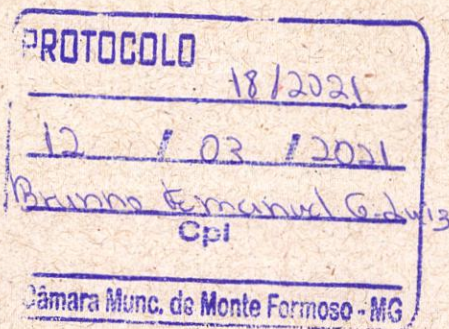 PROTOCOLO
18/2021
12 / 03 / 2021
Brunno Emanuel G. Luiz
Cpl
Câmara Munc. de Monte Formoso - MG